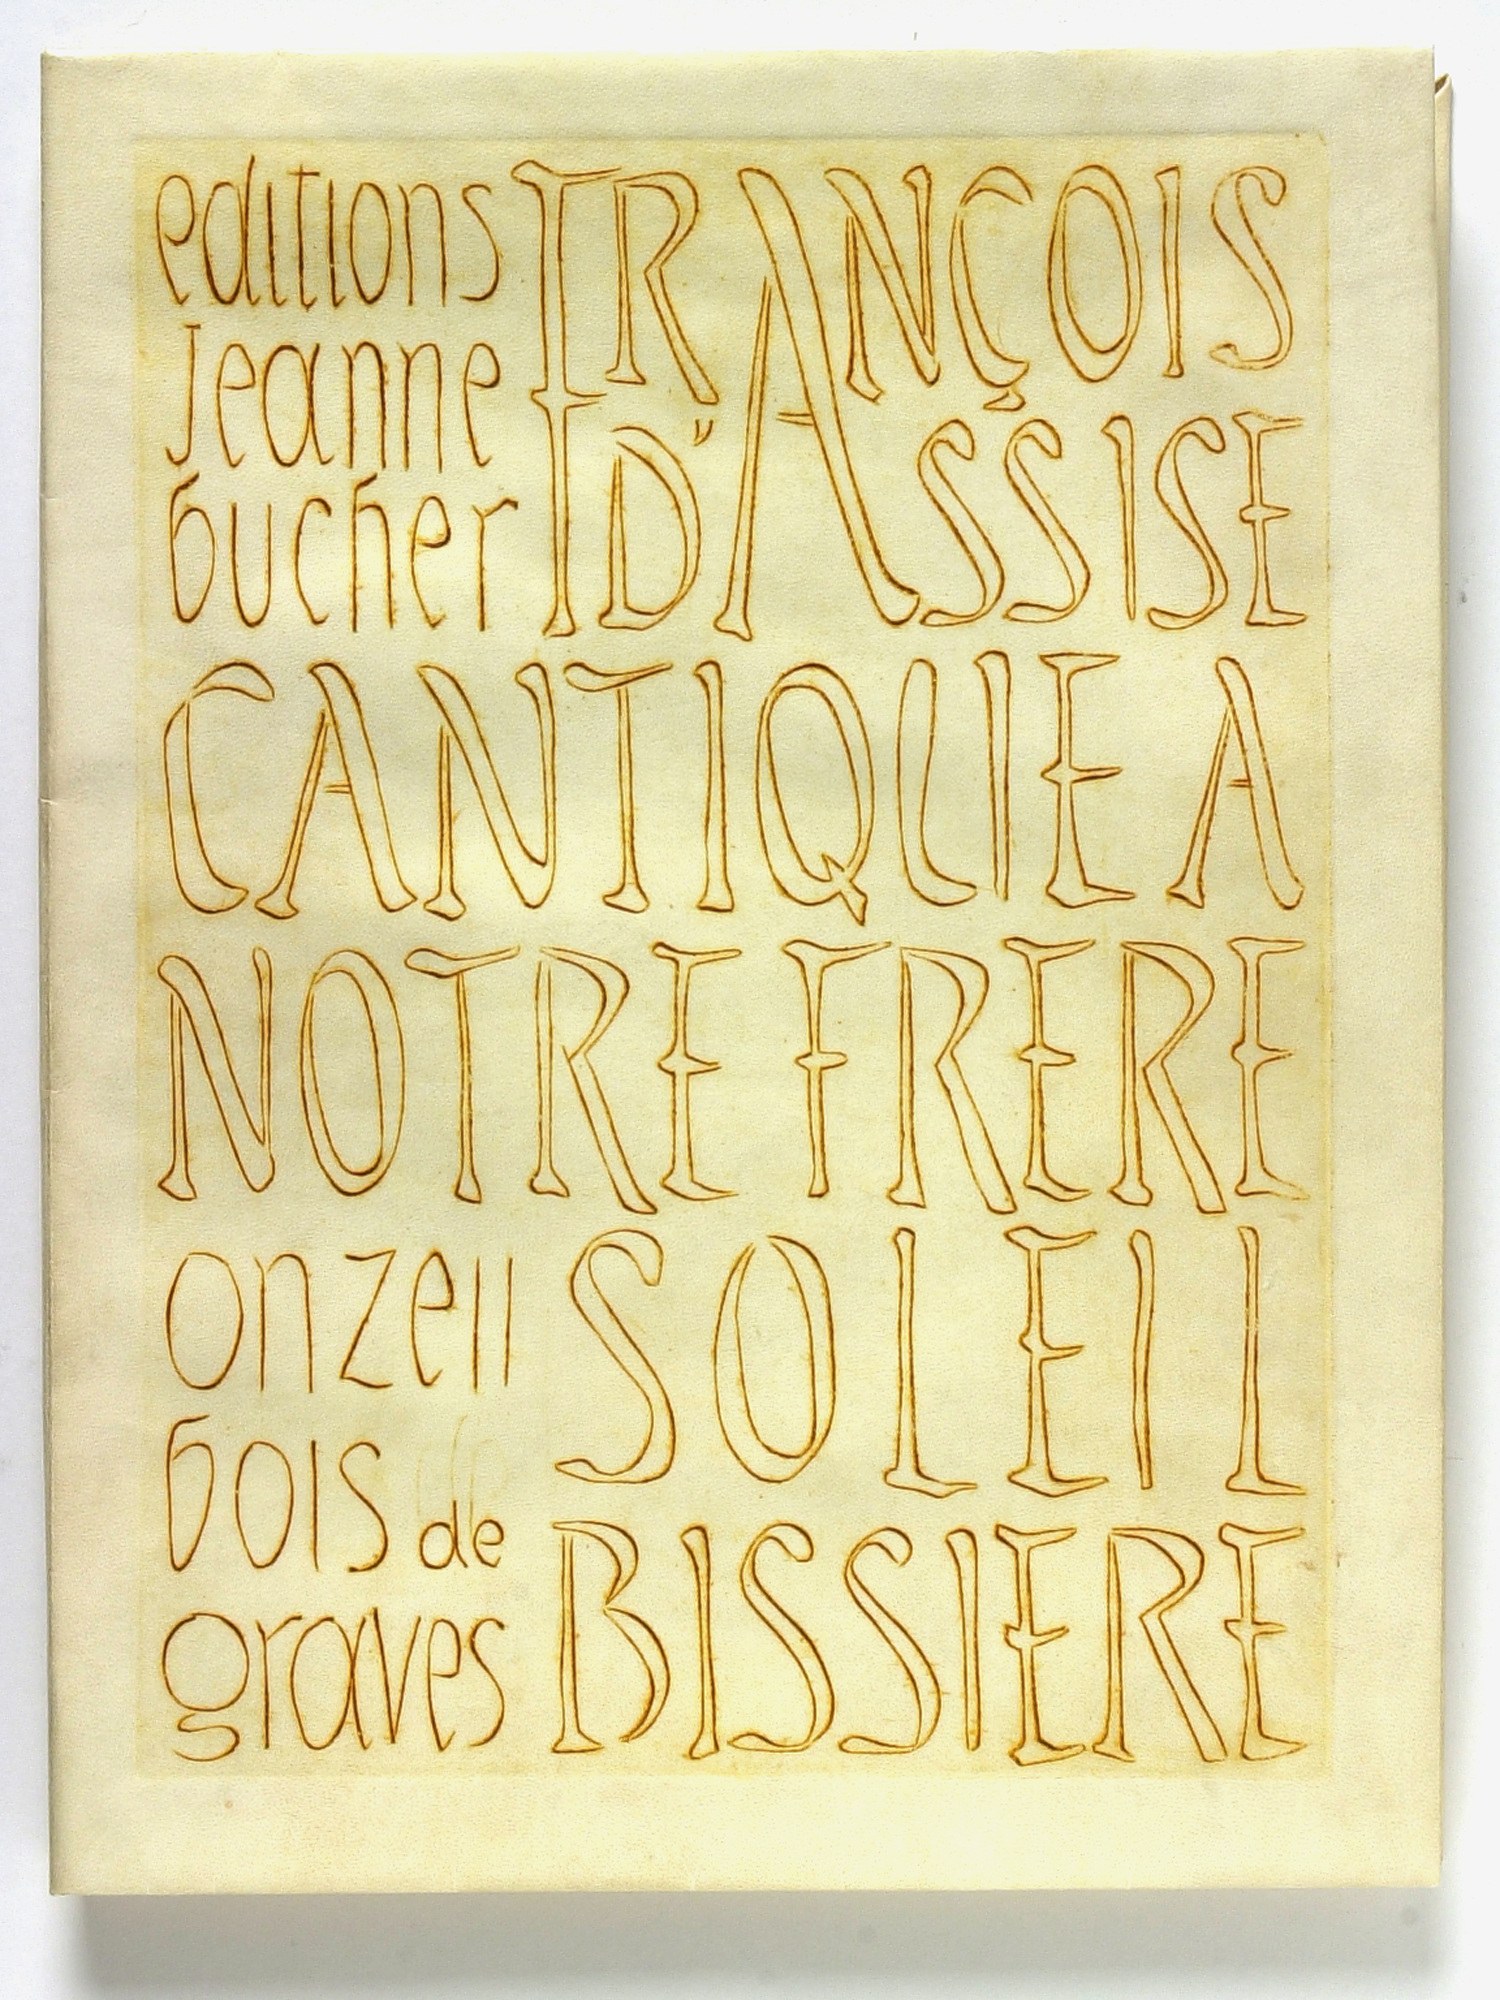 editions
Jeanne
bucher
FRANÇOIS
D'ASSISE
CANTIQUE A
NOTRE FRERE
SOLEIL
onze II
bois de
graves
BISSIERE